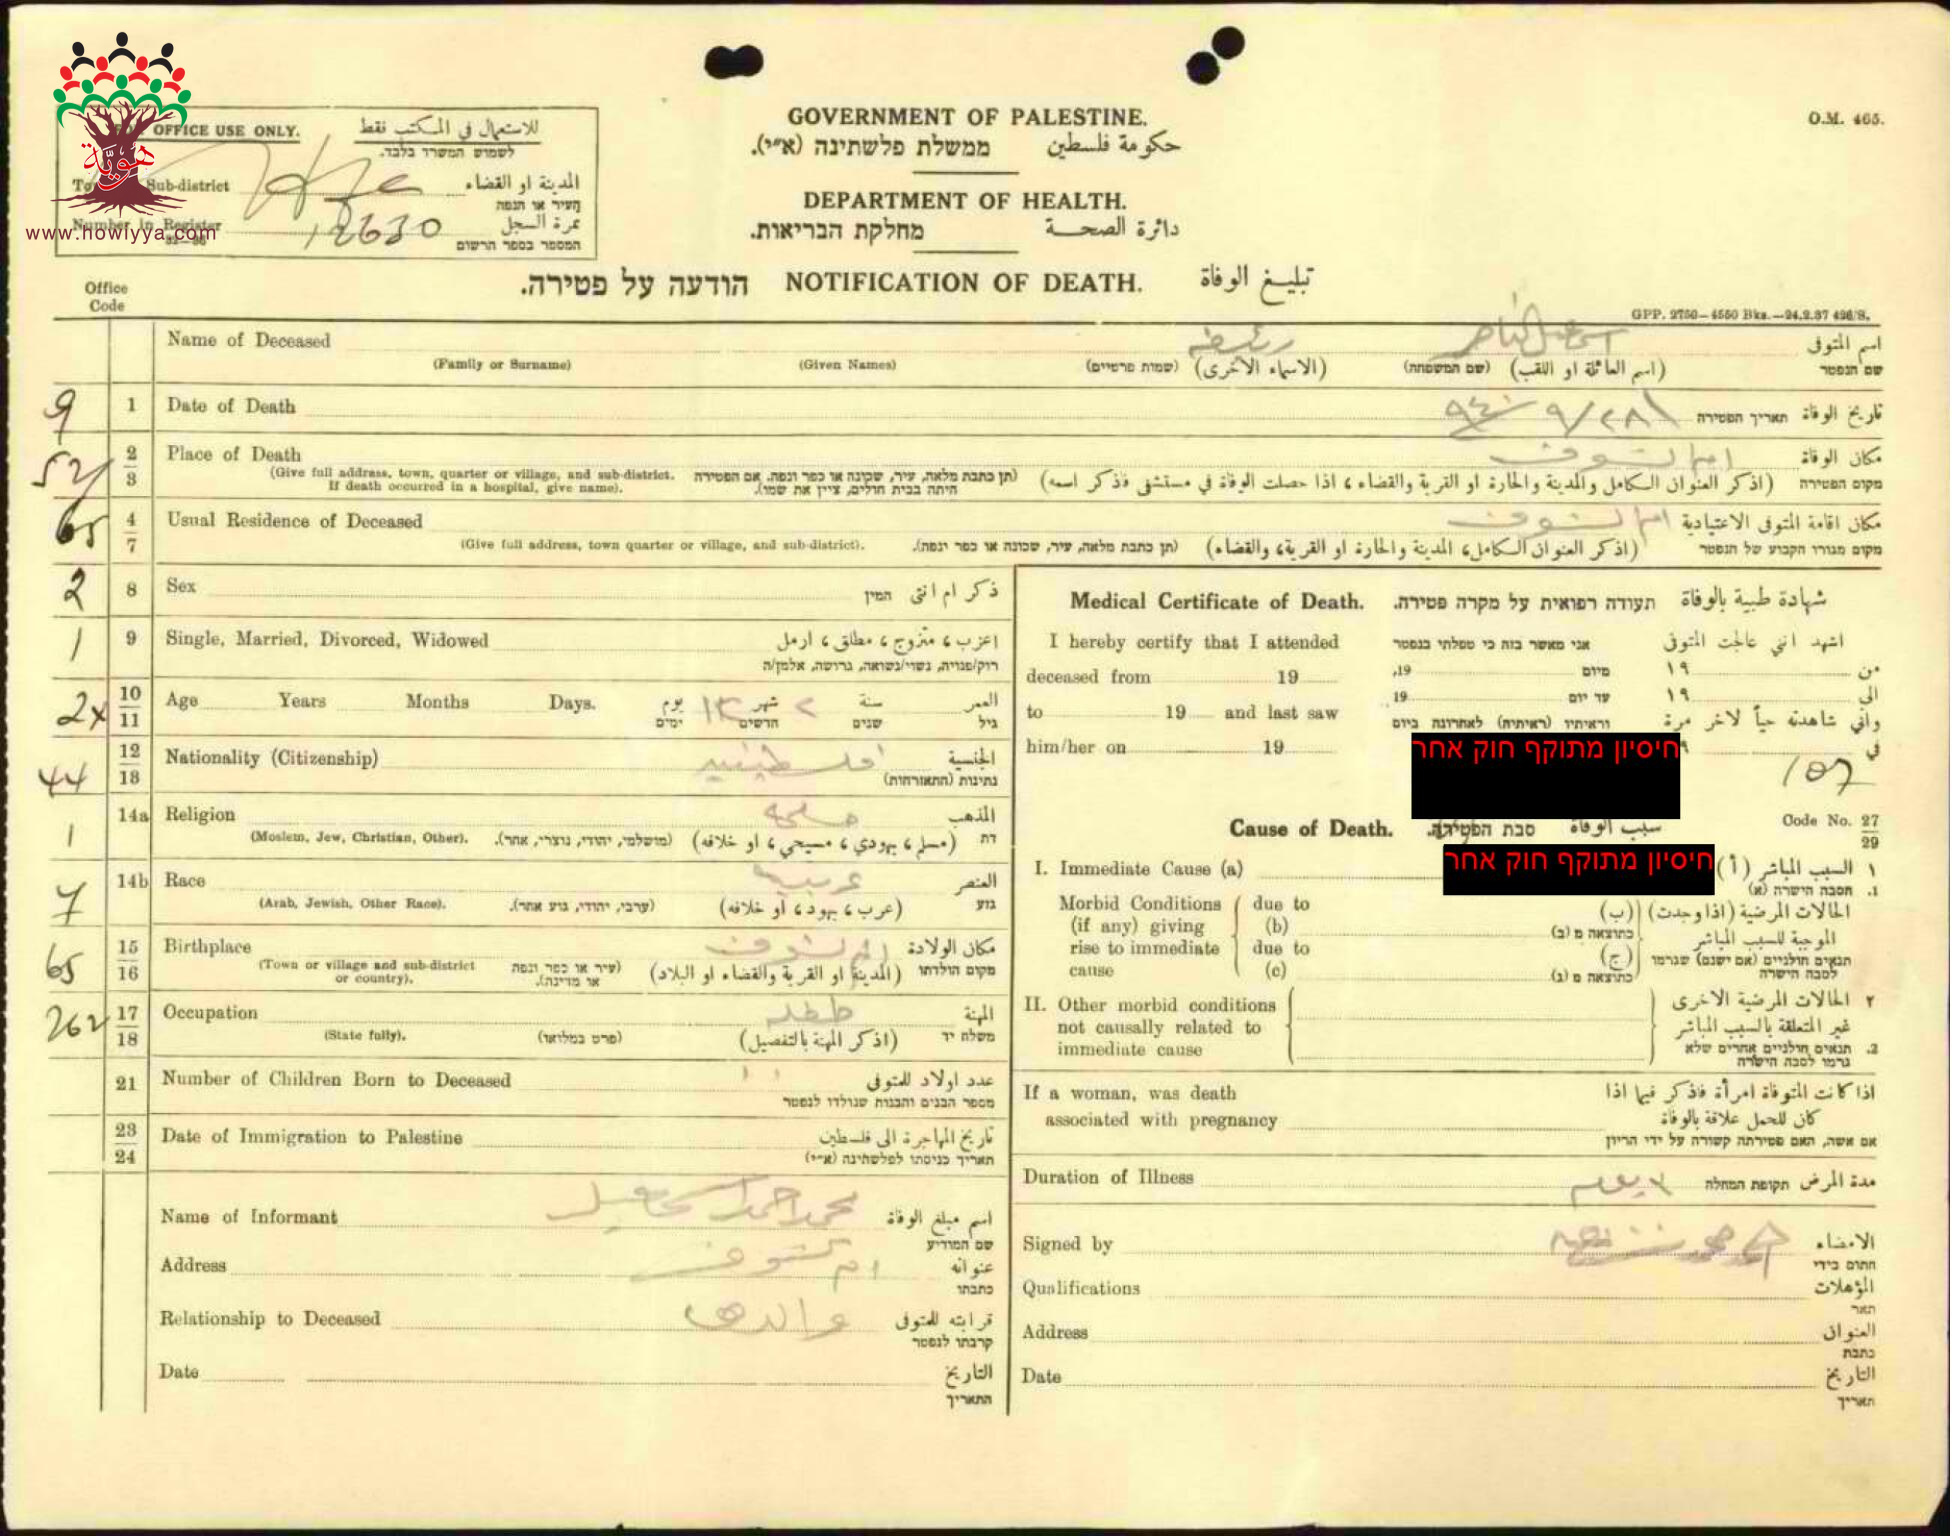 GOVERNMENT OF PALESTINE.
ממשלת פלשתינה (א״י). حكومة فلسطين
O.M. 465.
OFFICE USE ONLY. للاستعمال في المكتب فقط
לשמוש המשרד בלבד.
Sub-district المدينة او القضاء
העיר או הנפה
Number in Register 12630 نمرة السجل
המספר בספר הרשום
هوية
www.howiyya.com
DEPARTMENT OF HEALTH.
מחלקת הבריאות. دائرة الصحة
הודעה על פטירה. NOTIFICATION OF DEATH. تبليغ الوفاة
Office
Code
GPP. 2750—4550 Bks.—24.2.37 426/S.
Name of Deceased اسم المتوفى
(Family or Surname) (Given Names) (שמות פרטיים) (الاسماء الاخرى) (שם המשפחה) (اسم العائلة او اللقب) שם הנפטר
9 1 Date of Death תאריך הפטירה تاريخ الوفاة
52 2 3 Place of Death ام الشوف مكان الوفاة
(Give full address, town, quarter or village, and sub-district. If death occurred in a hospital, give name).
(תן כתבת מלאה, עיר, שכונה או כפר ונפה. אם הפטירה היתה בבית חולים, ציין את שמו).
(اذكر العنوان الكامل والمدينة والحارة او القرية والقضاء ، اذا حصلت الوفاة في مستشفى فاذكر اسمه) מקום הפטירה
65 4 7 Usual Residence of Deceased ام الشوف مكان اقامة المتوفى الاعتيادية
(Give full address, town quarter or village, and sub-district). (תן כתבת מלאה, עיר, שכונה או כפר ונפה). (اذكر العنوان الكامل، المدينة والحارة او القرية، والقضاء) מקום מגורו הקבוע של הנפטר
2 8 Sex המין ذكر ام انثى
1 9 Single, Married, Divorced, Widowed اعزب ، متزوج ، مطلق ، ارمل
רוק/פנויה, נשוי/נשואה, גרושה, אלמן/ה
2x 10 11 Age Years Months Days. يوم شهر سنة العمر
ימים חדשים שנים גיל
44 12 18 Nationality (Citizenship) فلسطينيه الجنسية
נתינות (התאזרחות)
1 14a Religion مسلمه المذهب
(Moslem, Jew, Christian, Other). (מושלמי, יהודי, נוצרי, אחר). (مسلم ، يهودي ، مسيحي ، او خلافه) דת
7 14b Race عربيه العنصر
(Arab, Jewish, Other Race). (ערבי, יהודי, גזע אחר). (عرب ، يهود ، او خلافه) גזע
65 15 16 Birthplace ام الشوف مكان الولادة
(Town or village and sub-district or country). (עיר או כפר ונפה או מדינה). (المدينة او القرية والقضاء او البلاد) מקום הולדתו
262 17 18 Occupation طفله المهنة
(State fully). (פרט במלואו) (اذكر المهنة بالتفصيل) משלח יד
21 Number of Children Born to Deceased عدد اولاد للمتوفى
מספר הבנים והבנות שנולדו לנפטר
23 24 Date of Immigration to Palestine تاريخ المهاجرة الى فلسطين
תאריך כניסתו לפלשתינה (א״י)
Name of Informant محمد احمد اسماعيل اسم مبلغ الوفاة
שם המודיע
Address ام الشوف عنوانه
כתבתו
Relationship to Deceased والدها قرابته للمتوفى
קרבתו לנפטר
Date التاريخ
התאריך
Medical Certificate of Death. תעודה רפואית על מקרה פטירה. شهادة طبية بالوفاة
I hereby certify that I attended אני מאשר בזה כי טפלתי בנפטר اشهد انني عالجت المتوفى
deceased from 19 19, מיום ١٩ من
to 19 and last saw 19 עד יום ١٩ الى
וראיתיו (ראיתיה) לאחרונה ביום واني شاهدته حياً لاخر مرة
him/her on 19 في
חיסיון מתוקף חוק אחר
107
Cause of Death. סבת הפטירה. سبب الوفاة Code No. 27 29
חיסיון מתוקף חוק אחר
I. Immediate Cause (a) السبب المباشر (أ) ١
1. הסבה הישרה (א)
Morbid Conditions (if any) giving rise to immediate cause due to (b) due to (c)
الحالات المرضية (اذا وجدت) (ب)
כתוצאה מ (ב)
الموجبة للسبب المباشر (ج)
תנאים חולניים (אם ישנם) שגרמו לסבה הישרה
כתוצאה מ (ג)
II. Other morbid conditions not causally related to immediate cause
٢ الحالات المرضية الاخرى
غير المتعلقة بالسبب المباشر
2. תנאים חולניים אחרים שלא גרמו לסבה הישרה
If a woman, was death associated with pregnancy
اذا كانت المتوفاة امرأة فاذكر فيما اذا
كان للحمل علاقة بالوفاة
אם אשה, האם פטירתה קשורה על ידי הריון
Duration of Illness תקופת המחלה مدة المرض
Signed by الامضاء
חתום בידי
Qualifications المؤهلات
תאר
Address العنوان
כתבת
Date التاريخ
תאריך